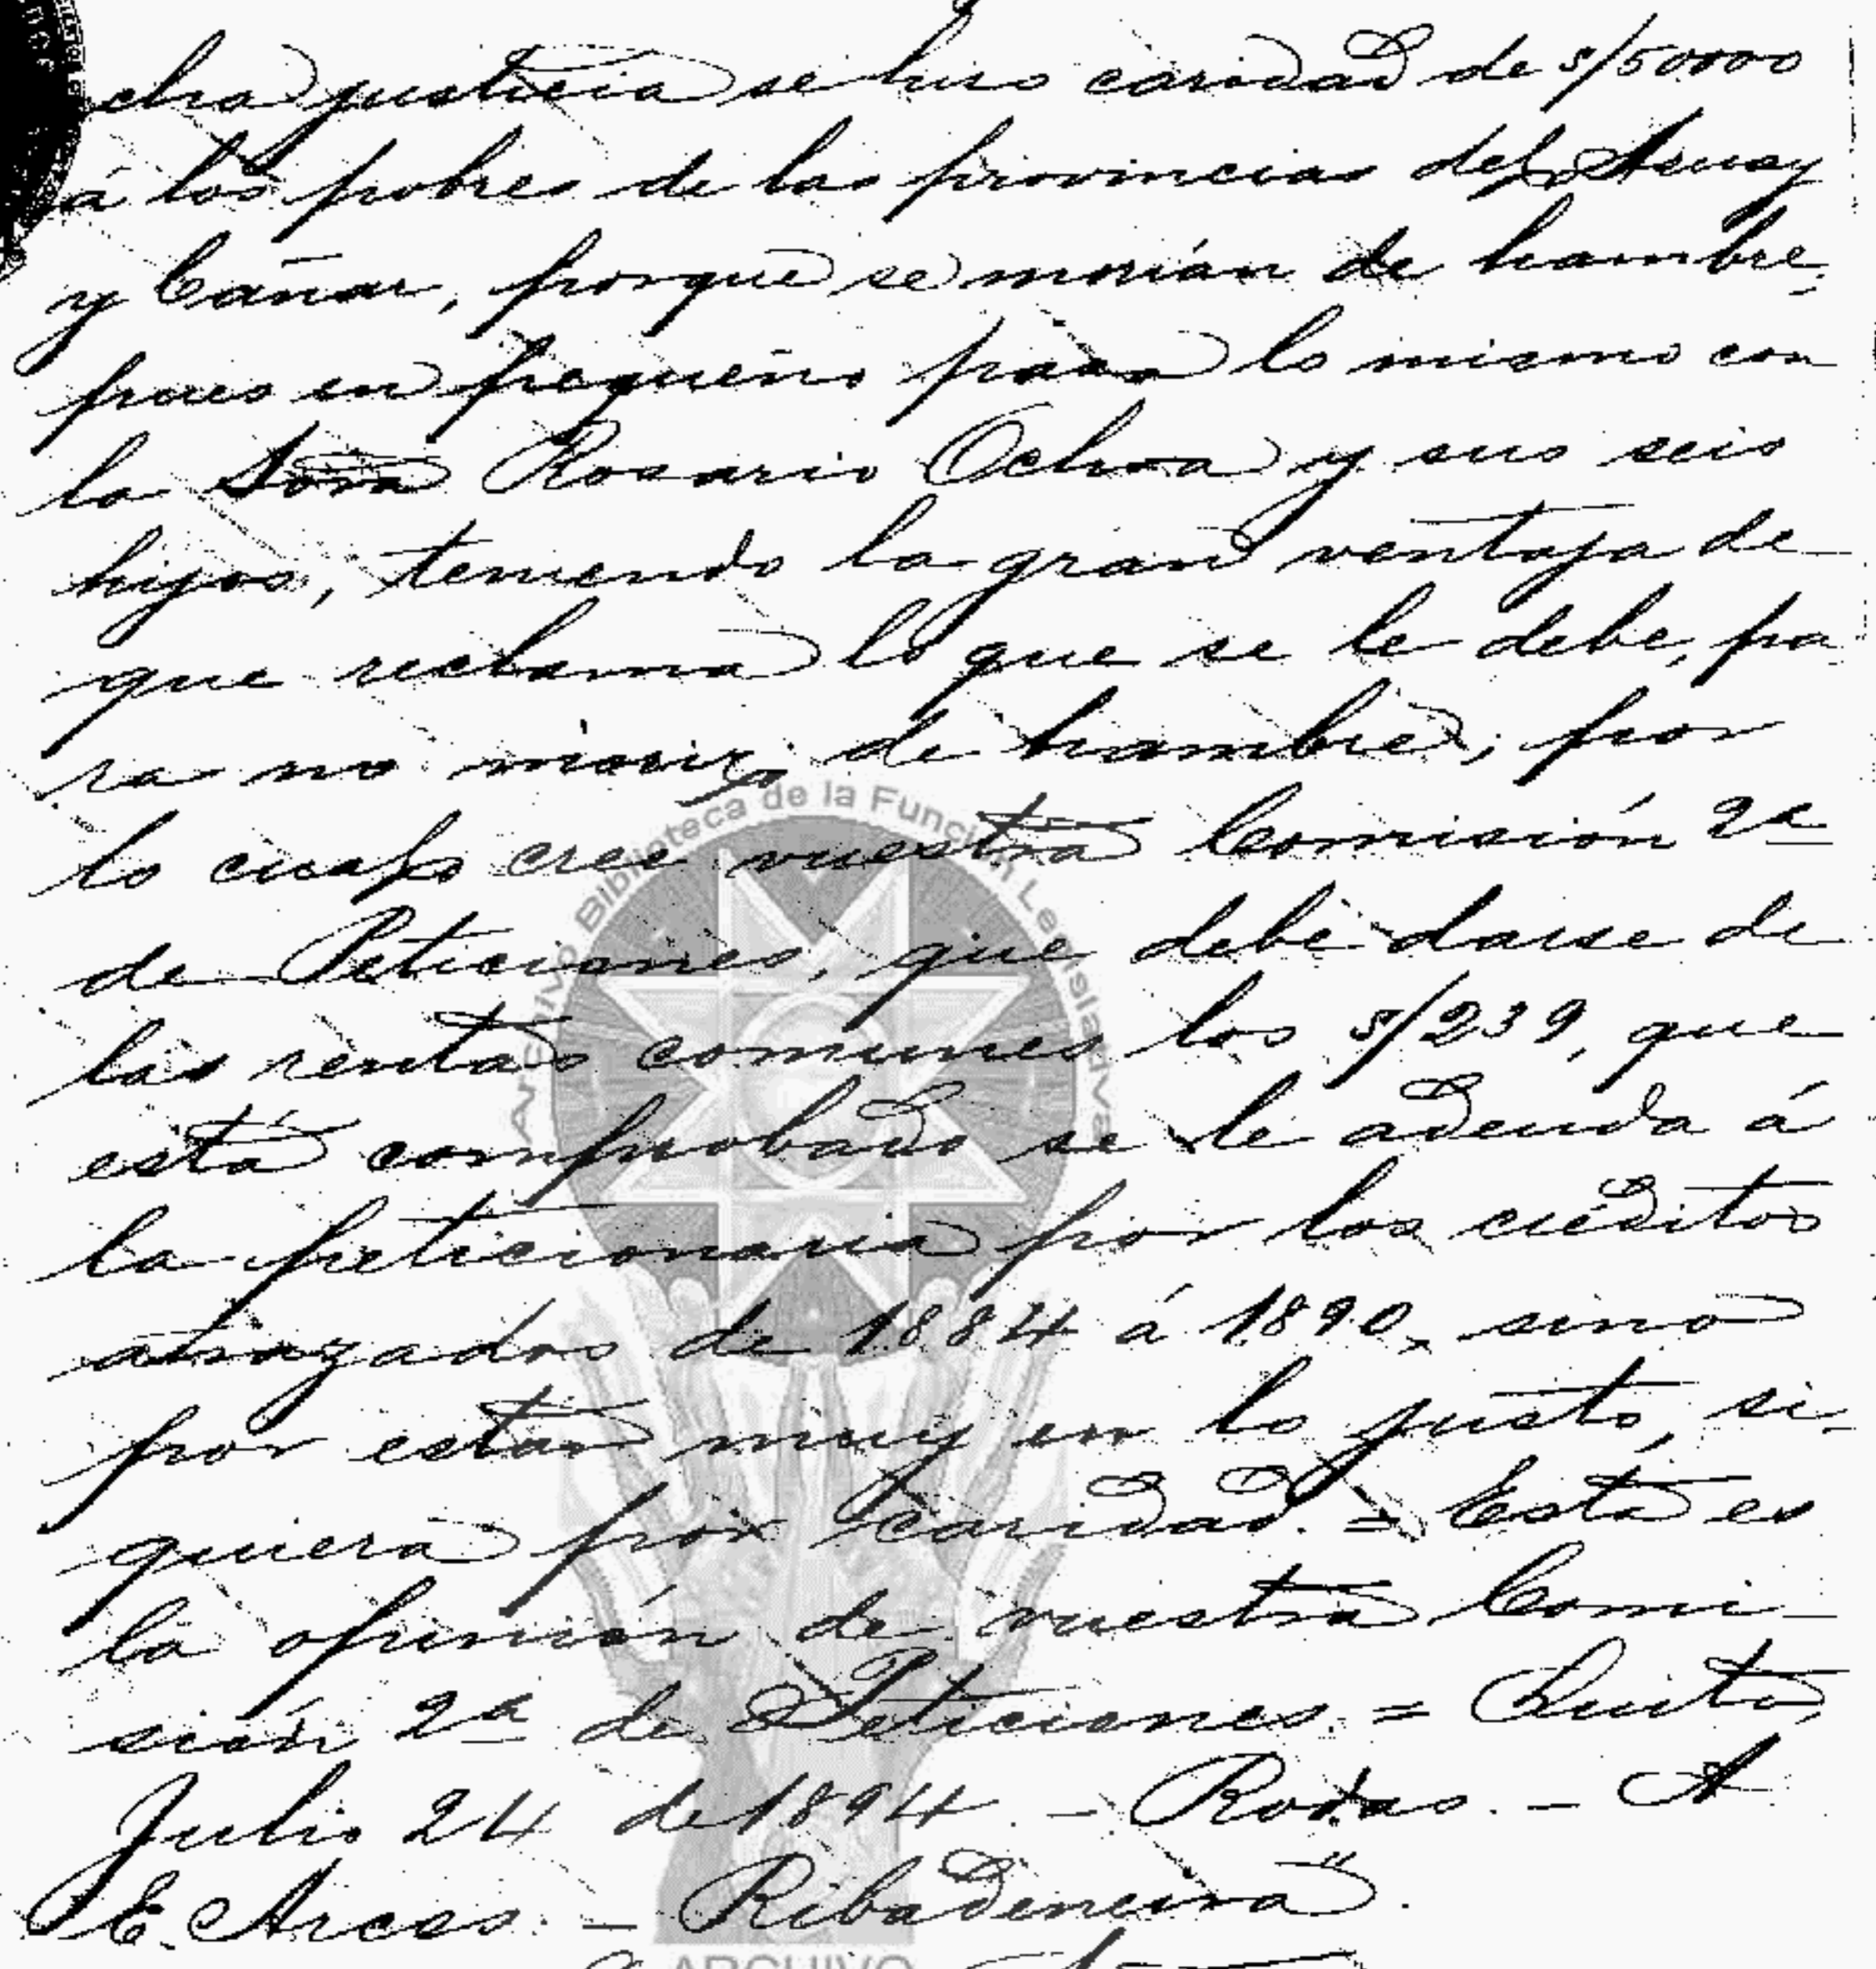 cha justicia se hiso caridad de s/50000
á los pobres de las provincias del Asuay
y Cañar, porque se morían de hambre,
pues en pequeño pasa lo mismo con
la Sora Rosario Ochoa y sus seis
hijos, teniendo la gran ventaja de
que reclama lo que se le debe, pa
ra no morir de hambre; por
lo cual cree vuestra Comisión 2a
de Peticiones, que debe darse de
las rentas comunes los s/239, que
está comprobado se le adeuda á
la peticionaria por los créditos
atrazados de 1884 á 1890, sino
por estar muy en lo justo, si-
quiera por caridad. = Esta es
la opinión de vuestra Comi-
sión 2a de Peticiones. = Quito,
Julio 24 de 1894. - Rodas. - A
E. Arcos. - Ribadeneira".
Archivo Biblioteca de la Función Legislativa
ARCHIVO